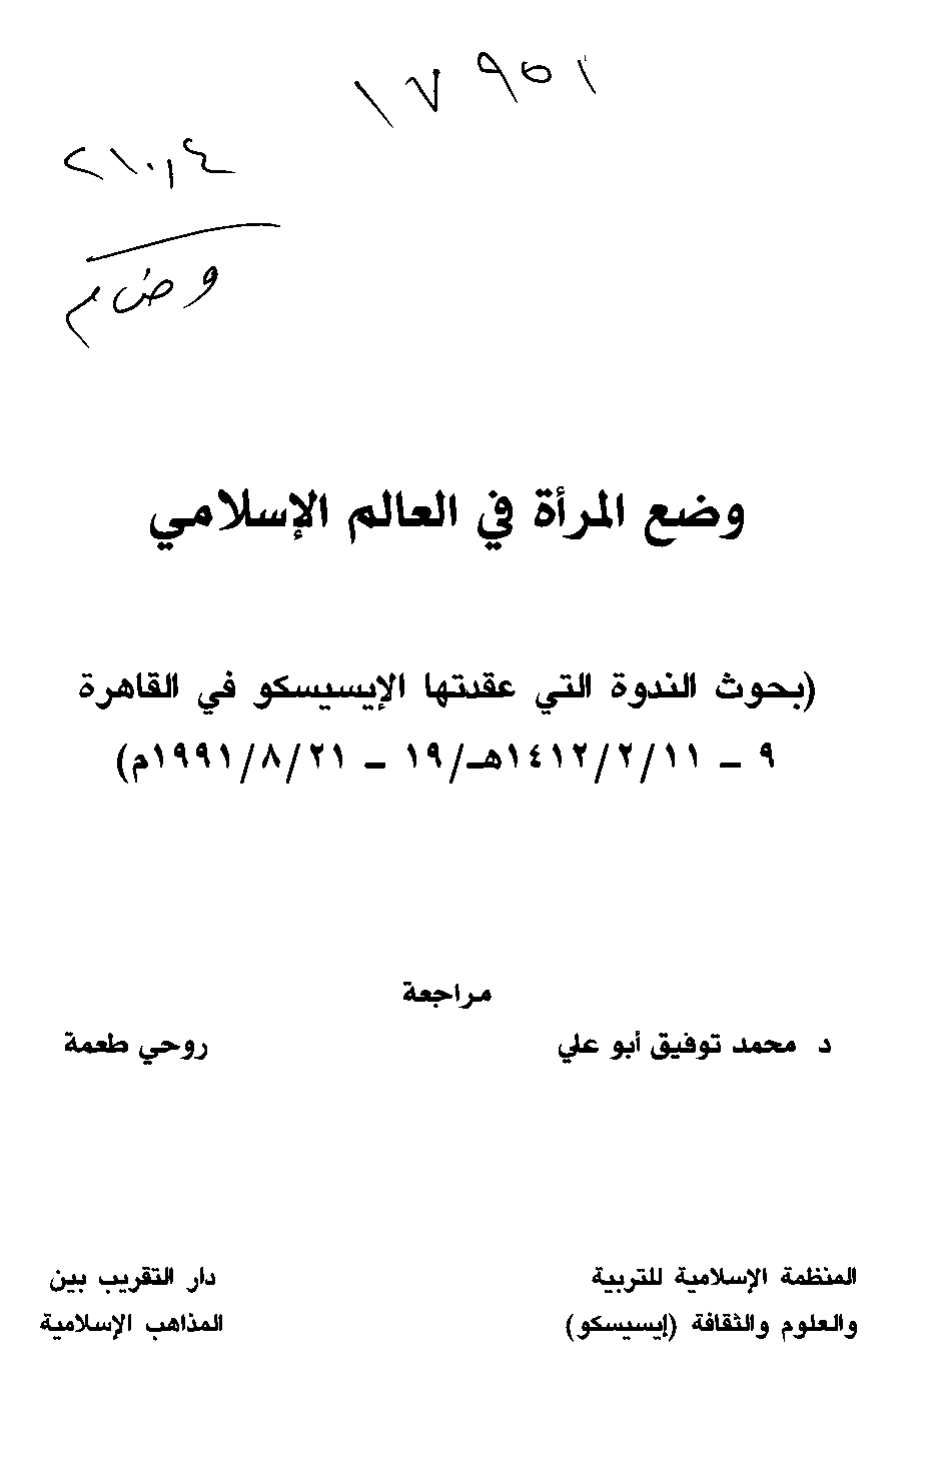 ١٧٩٥١
٢١٠,٤
وض م
وضع المرأة في العالم الإسلامي
(بحوث الندوة التي عقدتها الإيسيسكو في القاهرة
٩ - ١٤١٢/٢/١١هـ/١٩ - ١٩٩١/٨/٢١م)
مراجعة
د محمد توفيق أبو علي
روحي طعمة
المنظمة الإسلامية للتربية
والعلوم والثقافة (إيسيسكو)
دار التقريب بين
المذاهب الإسلامية